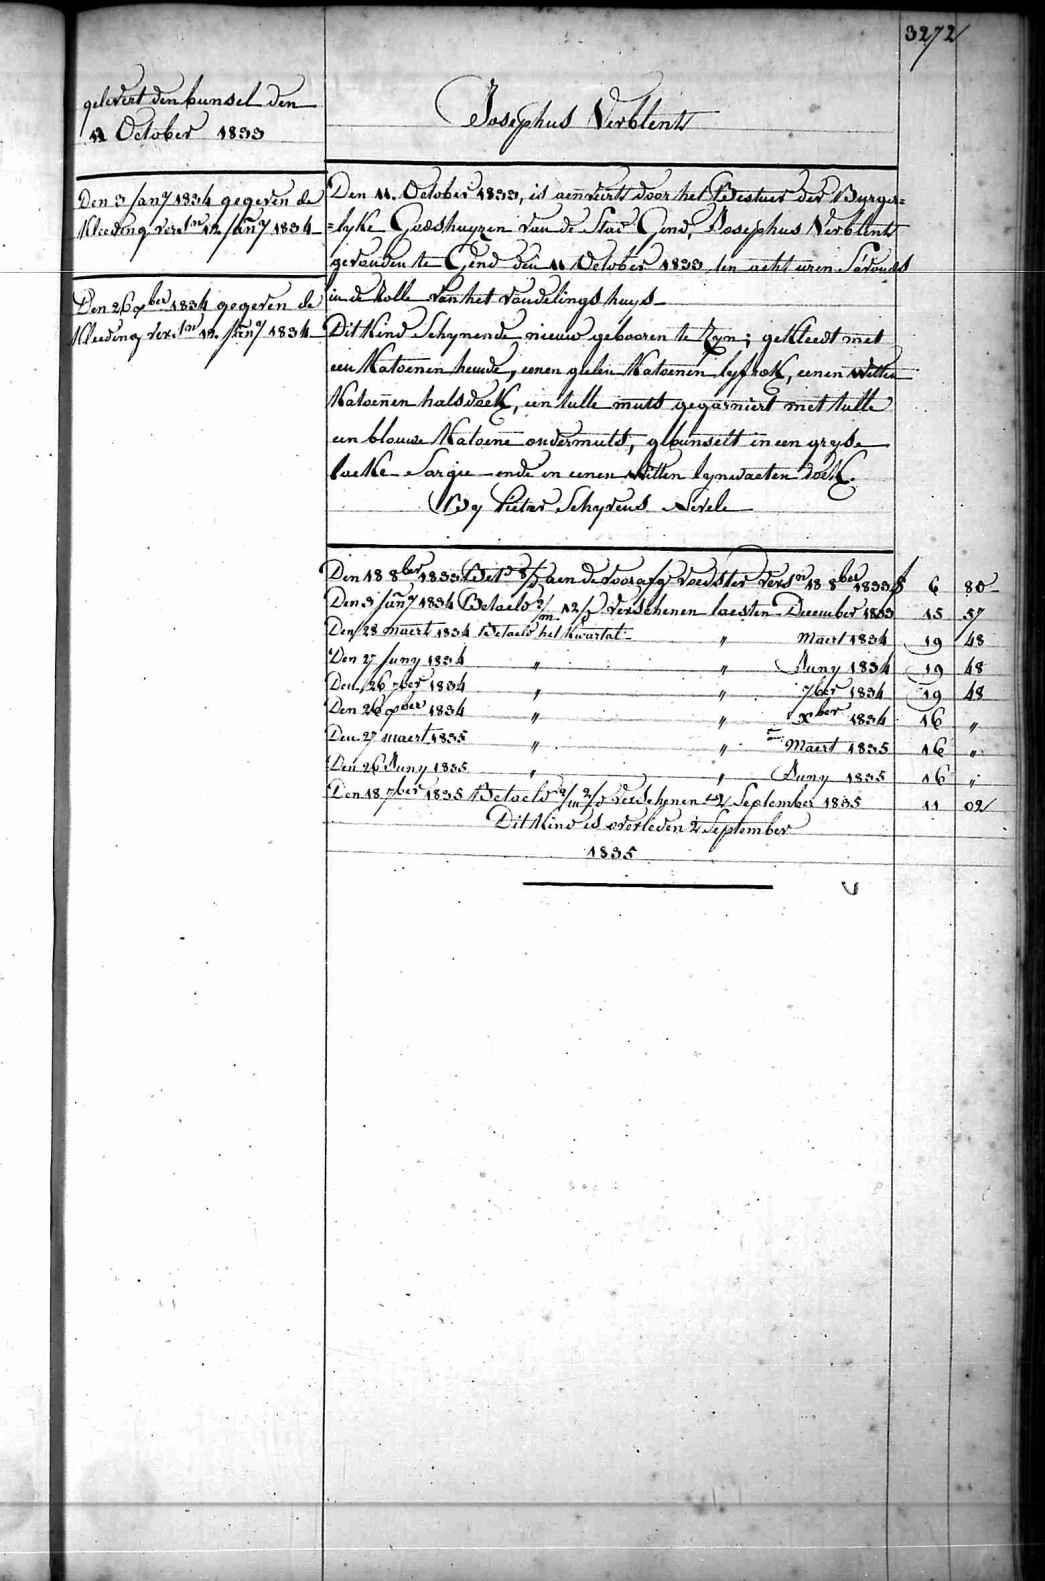 3272
gelevert den bunsel den
11 October 1833
Josephus Verblent
Den 3 Jany 1834 gegeven de
Kleeding vers.en in Jany 1834
Den 26 xber 1834 gegeven de
Kleeding vers.en in Jany 1834
Den 11. October 1833, is aenveert door het Bestuer der Burger=
=lyke Godshuyzen van de Stad Gend, Josephus Verblent
gevonden te Gend den 11 October 1833, ten acht uren S'avonds
in de Rolle van het vondelings huys
Dit Kind Schynende nieuw gebooren te Zyn; gekleedt met
een Katoenen hemde, eenen geelen Katoenen lyfrok, eenen Witten
Katoenen halsdoek, een tulle muts gegarniert met tulle
een blouwe Katoene ondermuts, gebunselt in een gryse
lueke Sargie ende in eenen Witten lynwaeten doek.
By Pieter Schyveus Nevele
Den 18 8ber 1833 Bet.d aen de voorafg.e voedster vers.n 18 8ber 1833 f 6 80
Den 3 Jany 1834 Betaeld 2/m 12/d verschenen laesten December 1833 15 57
Den 28 maert 1834 Betaeld het Kwartal " Maert 1834 19 48
Den 27 Juny 1834 " " Juny 1834 19 48
Den 26 7ber 1834 " " 7ber 1834 19 48
Den 26 xber 1834 " " xber 1834 16 "
Den 27 maert 1835 " " Maert 1835 16 "
Den 26 Juny 1835 " " Juny 1835 16 "
Den 18 7ber 1835 Betaeld 2/m 2/d verschenen 2 September 1835 11 02
Dit Kind is overleden 2 September
1835